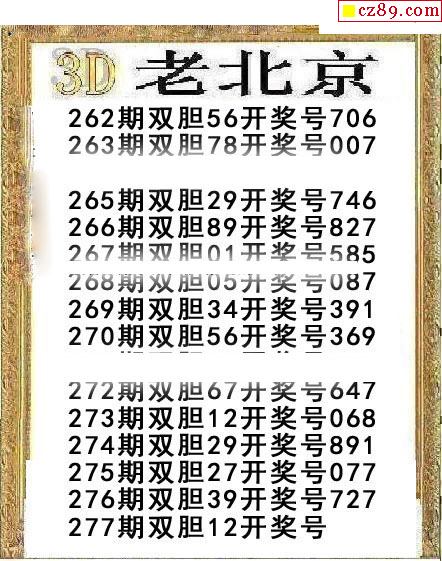 cz89.com
3D 老北京
262期双胆56开奖号706
263期双胆78开奖号007
265期双胆29开奖号746
266期双胆89开奖号827
267期双胆01开奖号585
268期双胆05开奖号087
269期双胆34开奖号391
270期双胆56开奖号369
272期双胆67开奖号647
273期双胆12开奖号068
274期双胆29开奖号891
275期双胆27开奖号077
276期双胆39开奖号727
277期双胆12开奖号